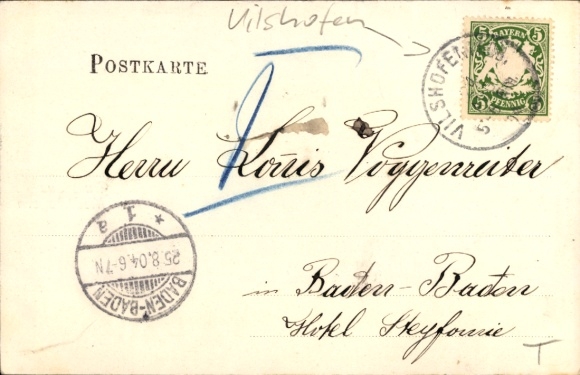 Vilshofen
POSTKARTE
5 BAYERN 5
5 PFENNIG 5
VILSHOFEN
Herrn Louis Voggenreiter
* 1 a
25.8.04.6-7N
BADEN-BADEN
in Baden-Baden
Hotel
T